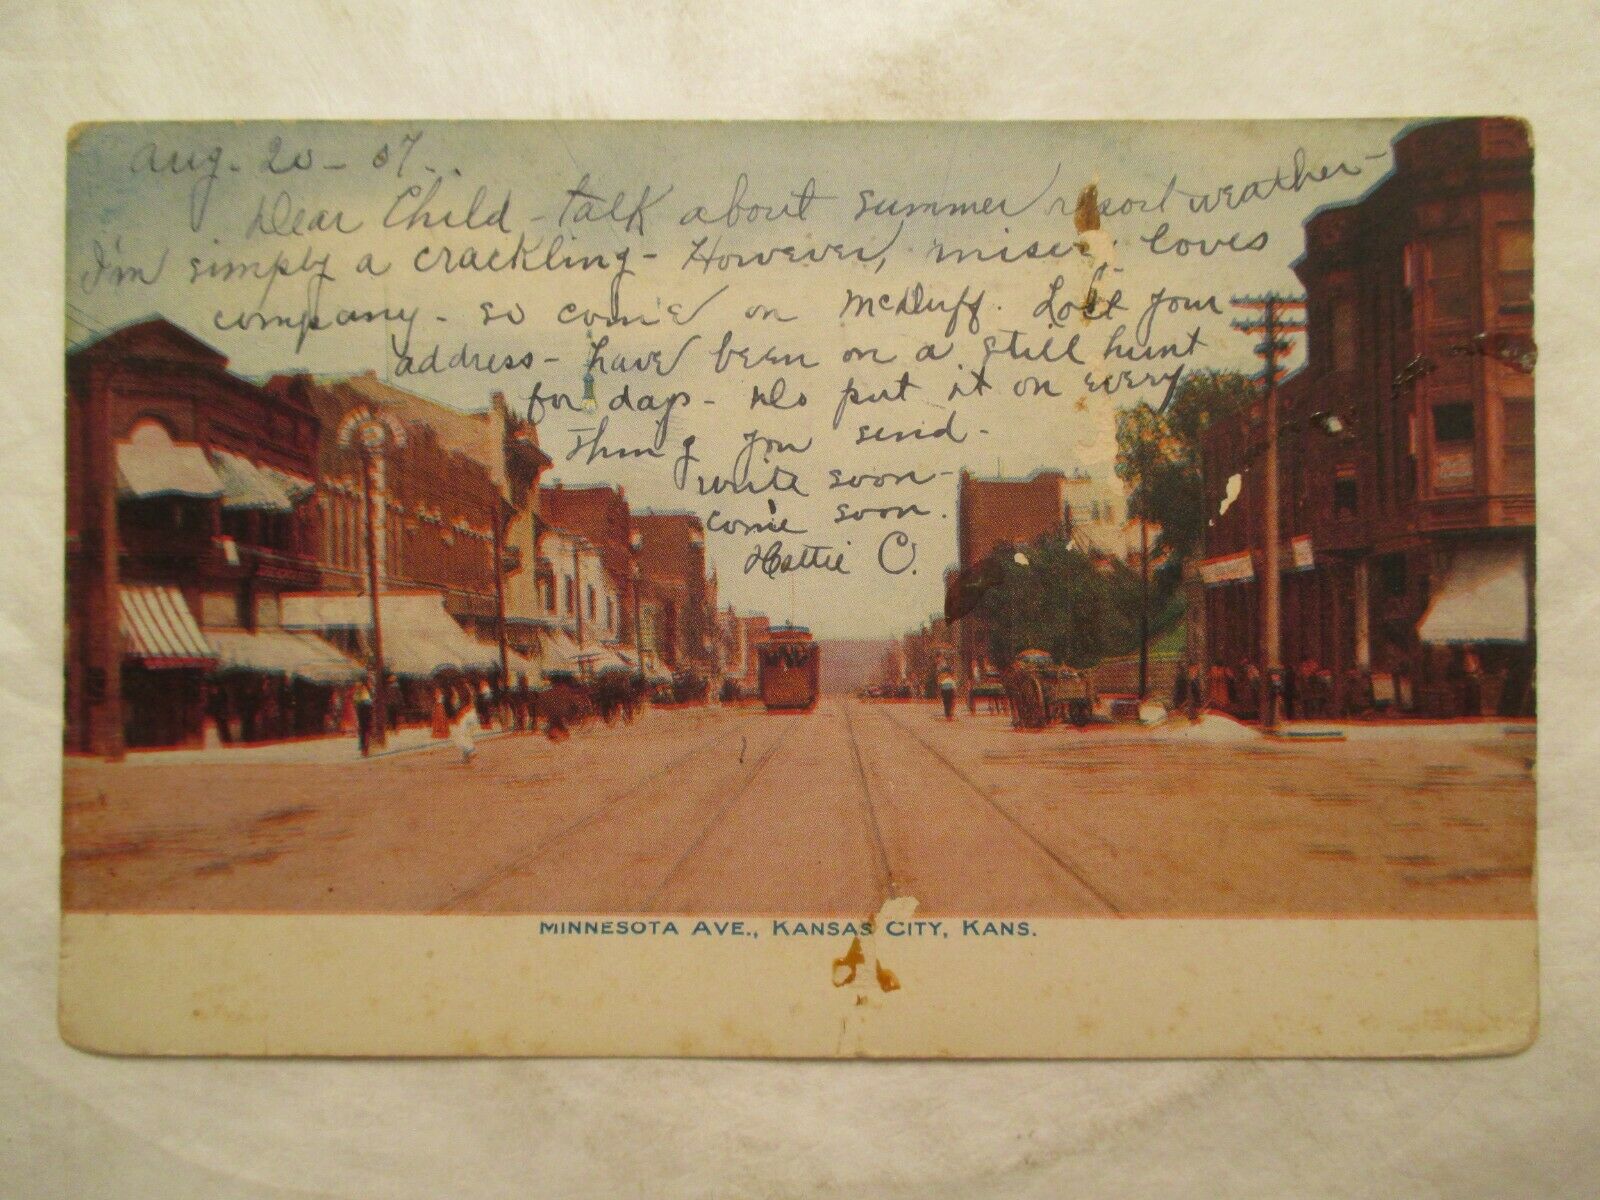 Aug. 20 - 07.
Dear Child - talk about summer resort weather -
I'm simply a crackling - However, misery loves
company - so come on McDuff. Lost your
address - have been on a still hunt
for days - Do put it on every
thing you send -
write soon -
come soon.
Hattie C.
MINNESOTA AVE., KANSAS CITY, KANS.